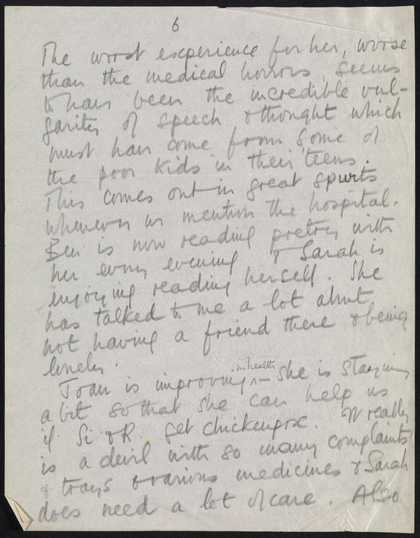 6
The worst experience for her, worse
than the medical horrors, seems
to have been the incredible vul-
garity of speech & thought which
must have come from some of
the poor kids in their teens.
This comes out in great spurts
whenever we mention the hospital.
Ben is now reading poetry with
her every evening & Sarah is
enjoying reading herself. She
has talked to me a lot about
not having a friend there & being
lonely.
Joan is improving in health – she is staying
a bit so that she can help us
if Si & R. get chickenpox. It really
is a devil with so many complaints
& trays & various medicines & Sarah
does need a lot of care. Also